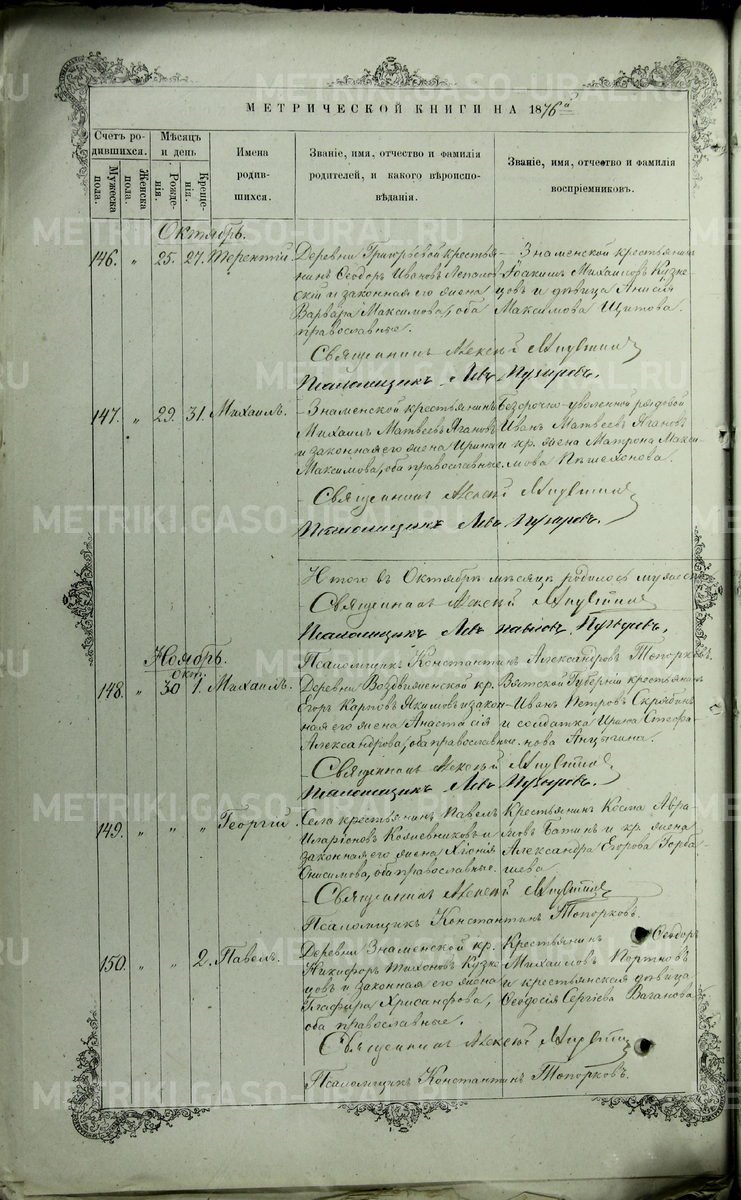 МЕТРИЧЕСКОЙ КНИГИ НА 1876й
Счетъ родившихся.
Мѣсяцъ и день
Имена родившихся.
Званіе, имя, отчество и фамилія родителей, и какого вѣроисповѣданія.
Званіе, имя, отчество и фамилія воспріемниковъ.
Мужеска пола.
Женска пола.
Рожденія.
Крещенія.
Октябрь.
146. " 25. 27. Терентій.
Деревни Григорьевой крестья-
нинъ Ѳеодоръ Ивановъ
и законная его жена
Варвара Максимова, оба
православные.
Знаменской крестьянинъ
Іоакимъ Михаиловъ Кузне-
цовъ и дѣвица Анисія
Максимова Щитова.
Священникъ Алексѣй
Псаломщикъ Левъ Пузыревъ.
147. " 29. 31. Михаилъ.
Знаменской крестьянинъ
Михаилъ Матвѣевъ Ягановъ
и законная его жена Ирина
Максимова, оба православные.
Безсрочно-уволенной рядовой
Иванъ Матвѣевъ Ягановъ
и кр. жена Матрона Макси-
мова Пѣшехонова.
Священникъ Алексѣй
Псаломщикъ Левъ Пузыревъ.
Итого въ Октябрѣ мѣсяцѣ родилось мужеска
Священникъ Алексѣй
Псаломщикъ Левъ Павловъ Пузыревъ.
Псаломщикъ Константинъ Александровъ Топорковъ.
Ноябрь.
Окт.
148. " 30 1. Михаилъ.
Деревни Воздвиженской кр.
Егоръ Карповъ Якимовъ и закон-
ная его жена Анастасія
Александрова, оба православные.
Вятской Губерніи крестьянинъ
Иванъ Петровъ Скрябинъ
и солдатка Ирина Стефа-
нова
Священникъ Алексѣй
Псаломщикъ Левъ Пузыревъ.
149. " " " Георгій.
Села крестьянинъ Павелъ
Иларіоновъ Кожевниковъ и
законная его жена Хіонія
Онисимова, оба православные.
Крестьянинъ Косма Авра-
мовъ Батинъ и кр. жена
Александра Егорова Горба-
шева
Священникъ Алексѣй
Псаломщикъ Константинъ Топорковъ.
150. " " 2. Павелъ.
Деревни Знаменской кр.
Никифоръ Тихоновъ Кузне-
цовъ и законная его жена
Глафира Хрисанфова,
оба православные.
Крестьянинъ Ѳеодоръ
Михаиловъ Портновъ
и крестьянская дѣвица
Ѳеодосія Сергіева Ваганова
Священникъ Алексѣй
Псаломщикъ Константинъ Топорковъ.
METRIKI.GASO-URAL.RU